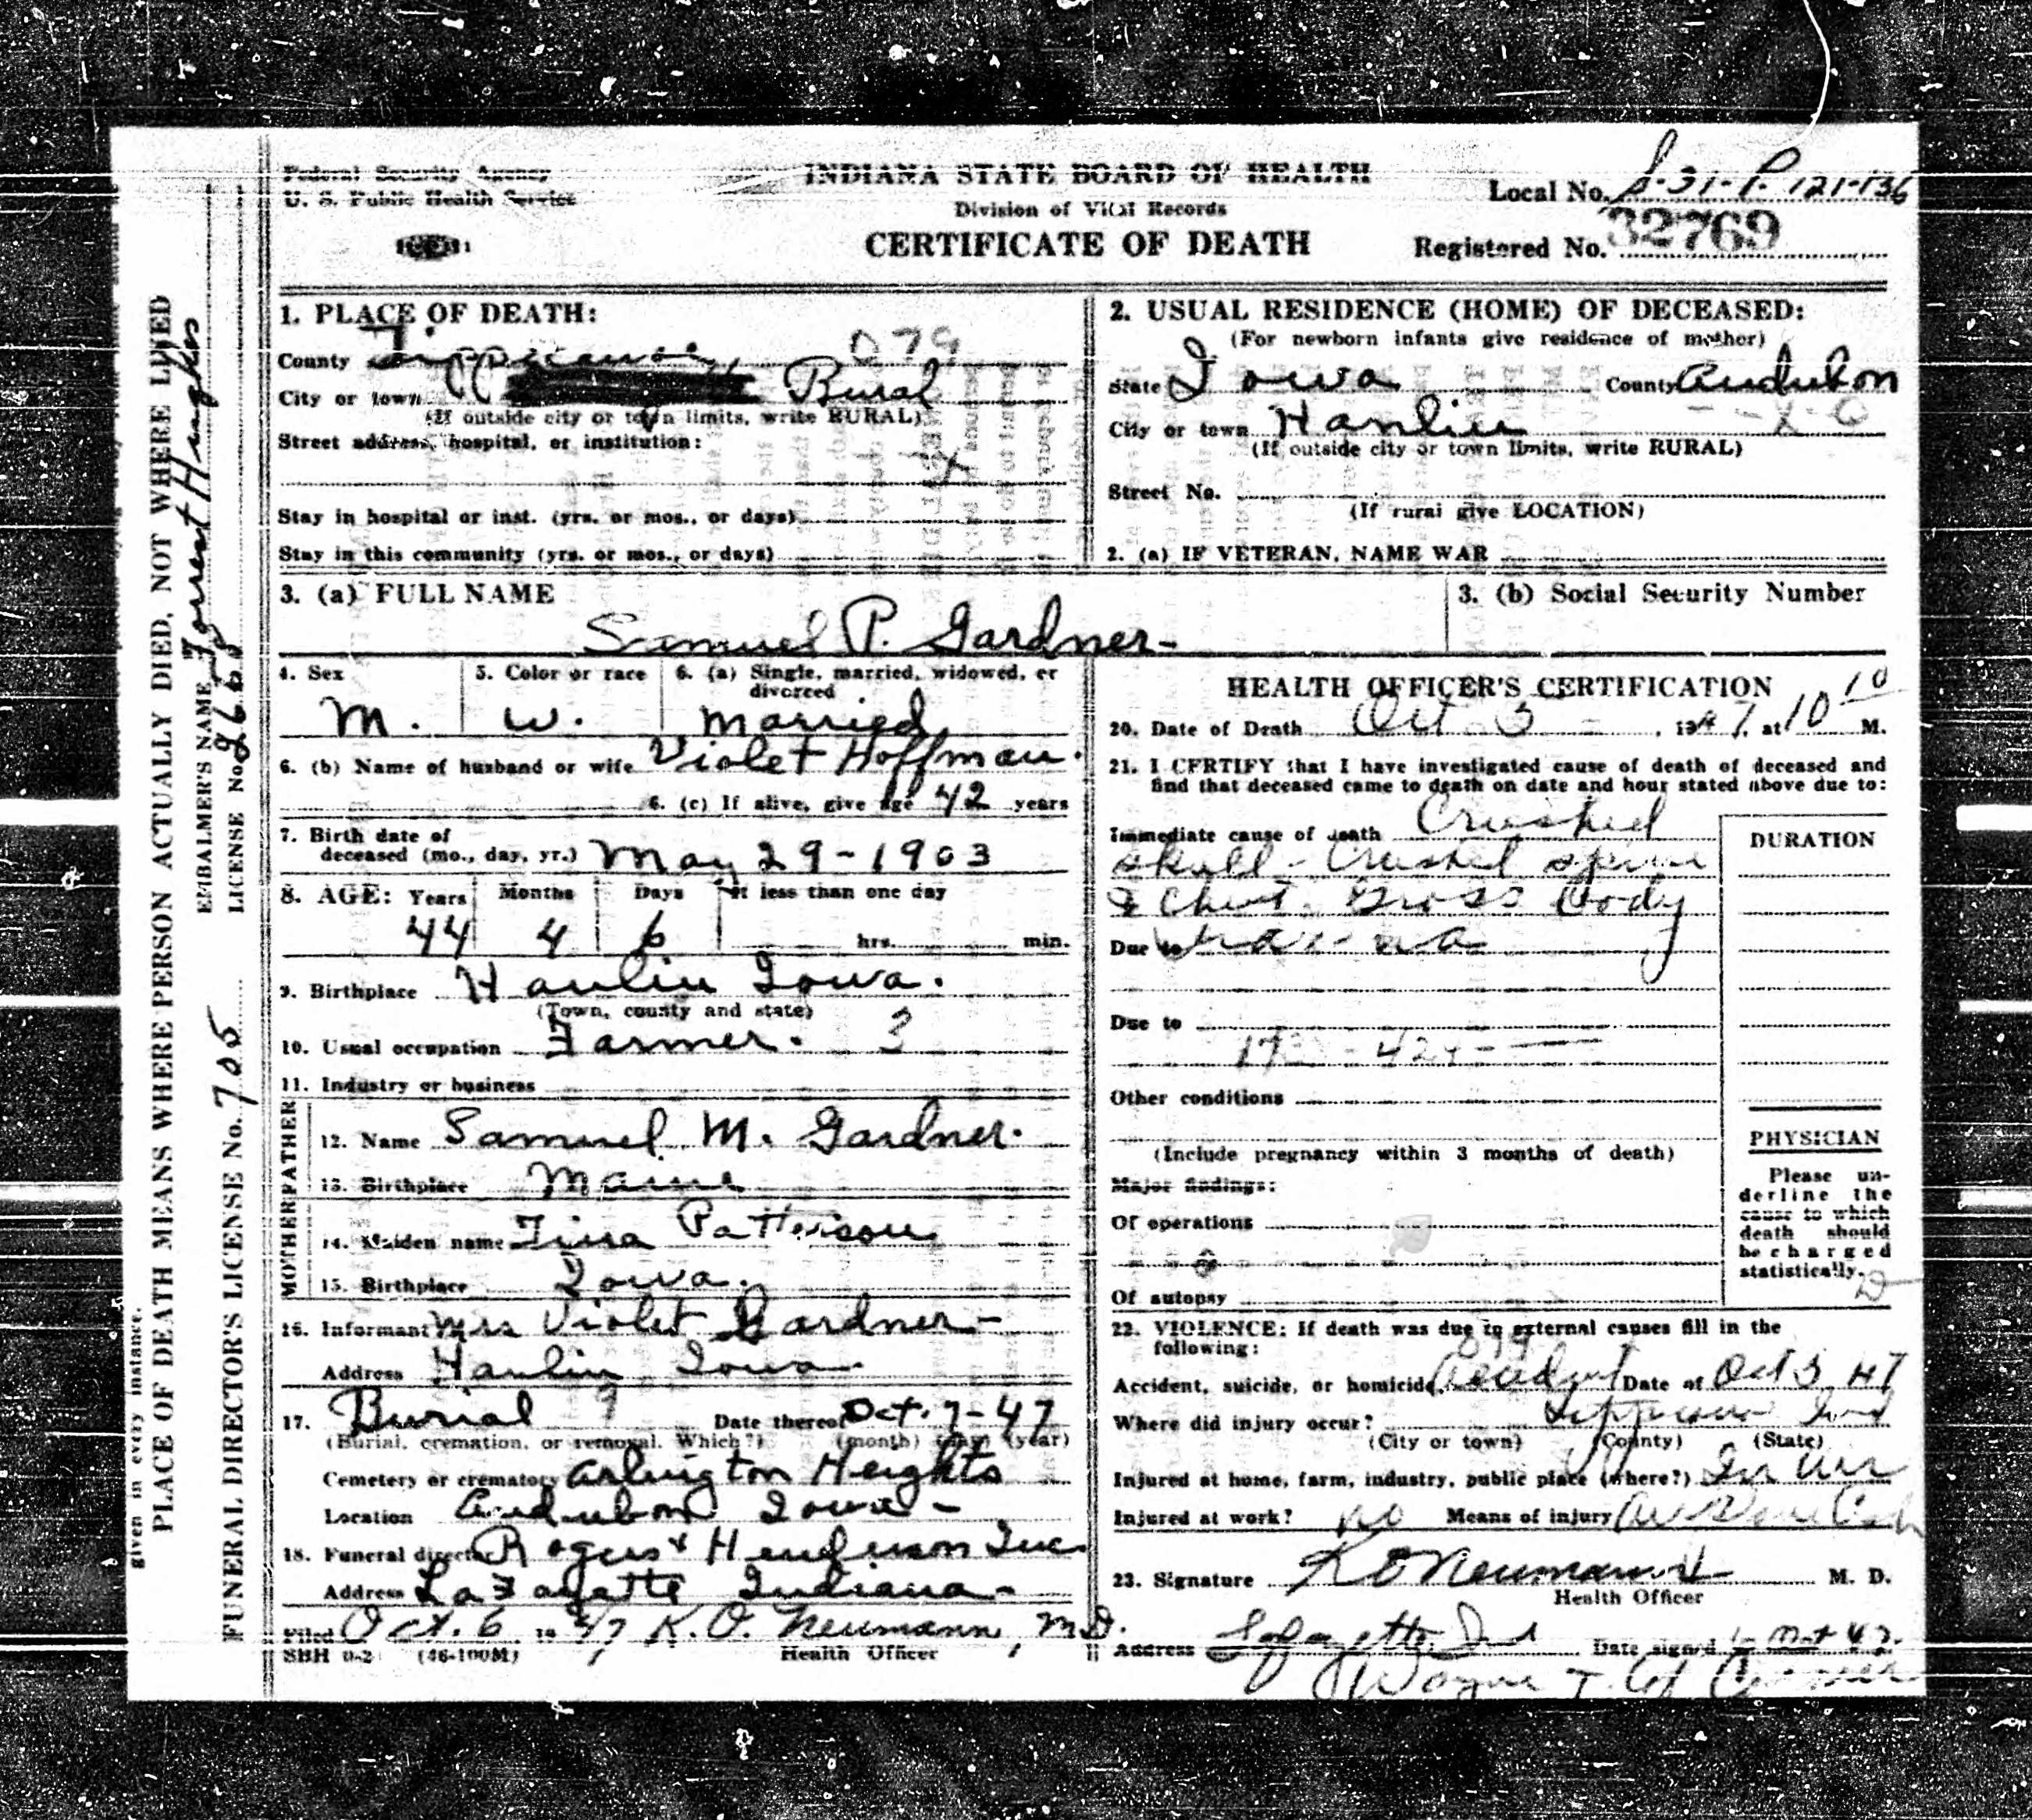 Federal Security Agency
U. S. Public Health Service
INDIANA STATE BOARD OF HEALTH
Division of Vital Records
CERTIFICATE OF DEATH
Local No. S-31-P. 121-136
Registered No. 32769
given in every instance.
PLACE OF DEATH MEANS WHERE PERSON ACTUALLY DIED, NOT WHERE LIVED
EMBALMER'S NAME Forrest Hughes
FUNERAL DIRECTOR'S LICENSE No. 705 LICENSE No.
1. PLACE OF DEATH:
County Tippecanoe, 079
City or town Rural
(If outside city or town limits, write RURAL)
Street address, hospital, or institution:
Stay in hospital or inst. (yrs. or mos., or days)
Stay in this community (yrs. or mos., or days)
2. USUAL RESIDENCE (HOME) OF DECEASED:
(For newborn infants give residence of mother)
State Iowa County Audubon
City or town Hamlin
(If outside city or town limits, write RURAL)
Street No.
(If rural give LOCATION)
2. (a) IF VETERAN, NAME WAR
3. (a) FULL NAME
Samuel P. Gardner
3. (b) Social Security Number
4. Sex
M.
5. Color or race
W.
6. (a) Single, married, widowed, or
divorced
Married
6. (b) Name of husband or wife Violet Hoffman.
6. (c) If alive, give age 42 years
7. Birth date of
deceased (mo., day, yr.) May 29-1903
8. AGE: Years Months Days If less than one day
44 4 6 hrs. min.
9. Birthplace Hamlin Iowa.
(Town, county and state)
10. Usual occupation Farmer. 3
11. Industry or business
FATHER
12. Name Samuel M. Gardner.
13. Birthplace Maine
MOTHER
14. Maiden name Tina Patterson
15. Birthplace Iowa.
16. Informant Mrs Violet Gardner-
Address Hamlin Iowa
17. Burial 9 Date thereof Oct. 7-47
(Burial, cremation, or removal. Which?) (month) (day) (year)
Cemetery or crematory Arlington Heights
Location Audubon Iowa-
18. Funeral director Rogers & Henderson Inc.
Address LaFayette Indiana-
Filed Oct. 6, 1947 K. O. Neumann, M.D.
SBH (46-100M) Health Officer
HEALTH OFFICER'S CERTIFICATION
20. Date of Death Oct 5, 1947, at 10 10 M.
21. I CERTIFY that I have investigated cause of death of deceased and
find that deceased came to death on date and hour stated above due to:
Immediate cause of death Crushed
skull - Crushed spine
& Chest. Gross body
Due to trauma
Due to
Other conditions
(Include pregnancy within 3 months of death)
Major findings:
Of operations
Of autopsy
DURATION
PHYSICIAN
Please un-
derline the
cause to which
death should
be charged
statistically.
22. VIOLENCE: If death was due to external causes fill in the
following: 079
Accident, suicide, or homicide, accident Date of Oct 5 47
Where did injury occur? Tippecanoe Ind
(City or town) (County) (State)
Injured at home, farm, industry, public place (where?) In air
Injured at work? no Means of injury
23. Signature K O Neumann M. D.
Health Officer
Address Lafayette, Ind Date signed
Wayne T. Coroner